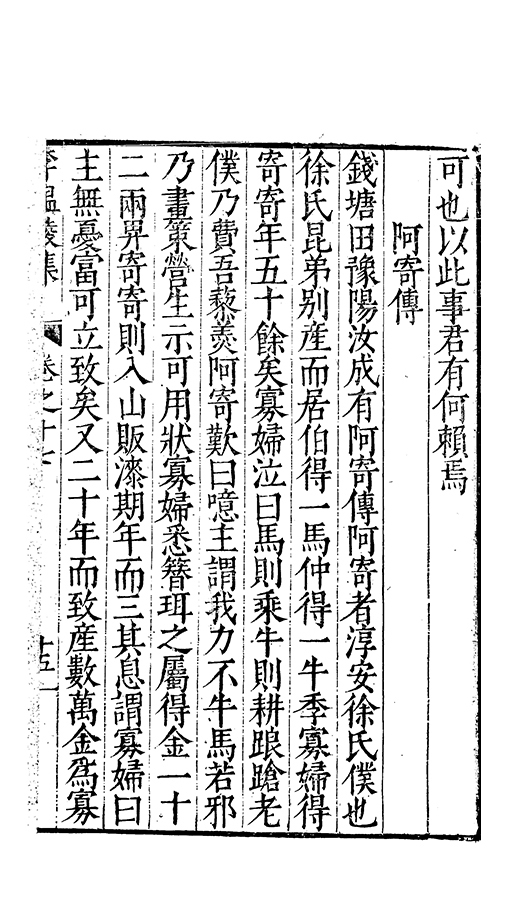 可也以此事君有何賴焉
阿寄傳
錢塘田豫陽汝成有阿寄傳阿寄者淳安徐氏僕也
徐氏昆弟别産而居伯得一馬仲得一牛季寡婦得
寄寄年五十餘矣寡婦泣曰馬則乘牛則耕踉蹌老
僕乃費吾藜羮阿寄歎曰噫主謂我力不牛馬若邪
乃畫策營生示可用狀寡婦悉簪珥之屬得金一十
二兩畀寄寄則入山販漆期年而三其息謂寡婦曰
主無憂富可立致矣又二十年而致産數萬金爲寡
李温陵集 卷之十七 十五